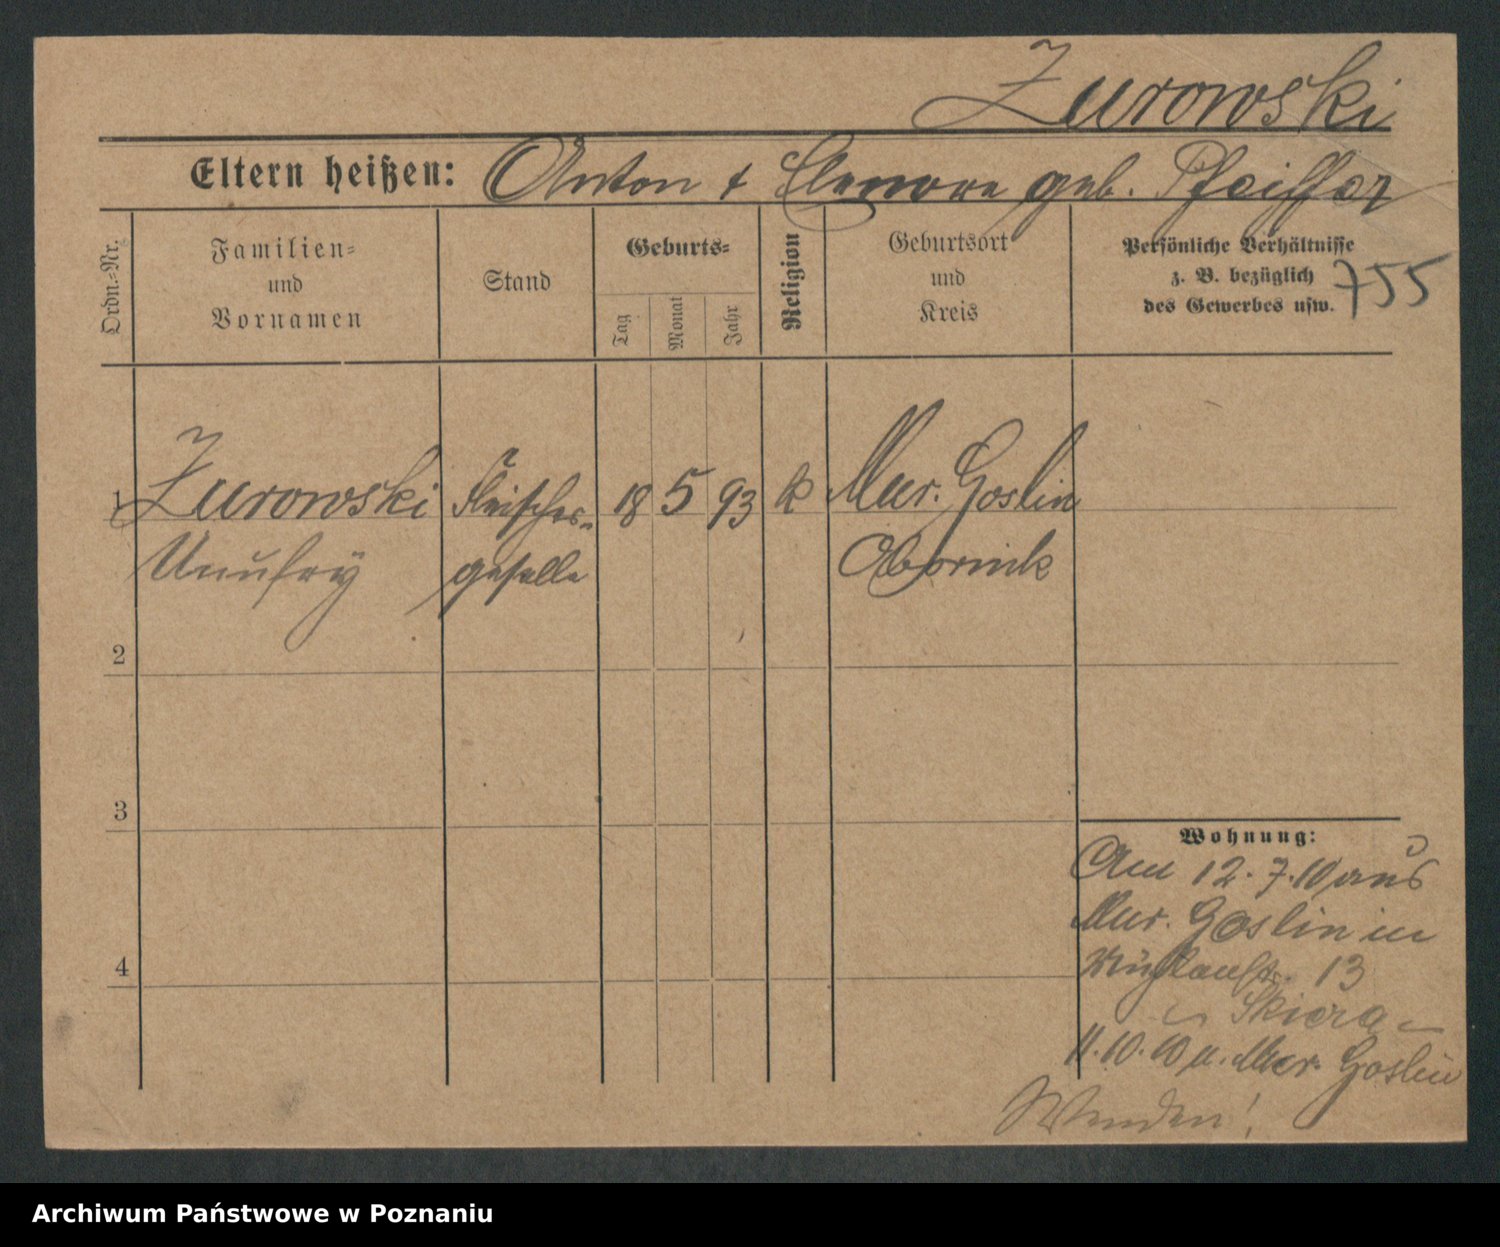 Zurowski
Eltern heißen: Anton + Elenore geb. Pfeiffer
Ordn.=Nr.
Familien=
und
Vornamen
Stand
Geburts=
Tag
Monat
Jahr
Religion
Geburtsort
und
Kreis
Persönliche Verhältnisse
z. B. bezüglich
des Gewerbes usw.
755
1 Zurowski Fleischer- 18 5 93 k Mur. Goslin
geselle Obornik
2
3
4
Wohnung:
Am 12.7.10 aus
Mur. Goslin in
13
Skiera
11.10.10 n. Mur. Goslin
Wenden!
Archiwum Państwowe w Poznaniu